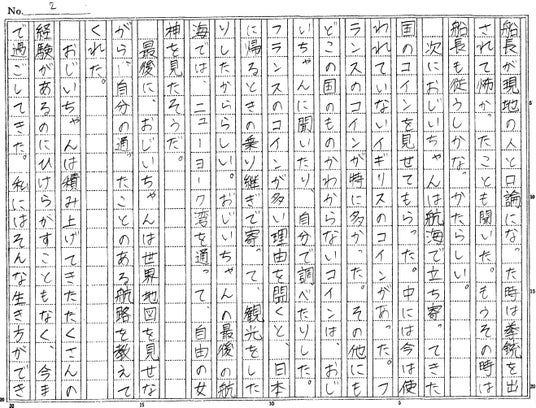 No. 2
船長が現地の人と口論になった時は拳銃を出
されて怖かったことも聞いた。もうその時は
船長も従うしかなかったらしい。
次におじいちゃんは航海で立ち寄ってきた
国のコインを見せてもらった。中には今は使
われていないイギリスのコインがあった。フ
ランスのコインが特に多かった。その他にも
どこの国のものかわからないコインは、おじ
いちゃんに聞いたり、自分で調べたりした。
フランスのコインが多い理由を聞くと、日本
に帰るときの乗り継ぎで寄って、観光をした
りしたかららしい。おじいちゃんの最後の航
海では、ニューヨーク湾を通って、自由の女
神を見たそうだ。
最後に、おじいちゃんは世界地図を見せな
がら、自分の通ったことのある航路を教えて
くれた。
おじいちゃんは積み上げてきたたくさんの
経験があるのにひけらかすこともなく、今ま
で過ごしてきた。私にはそんな生き方ができ
5
10
15
20
5
10
15
20